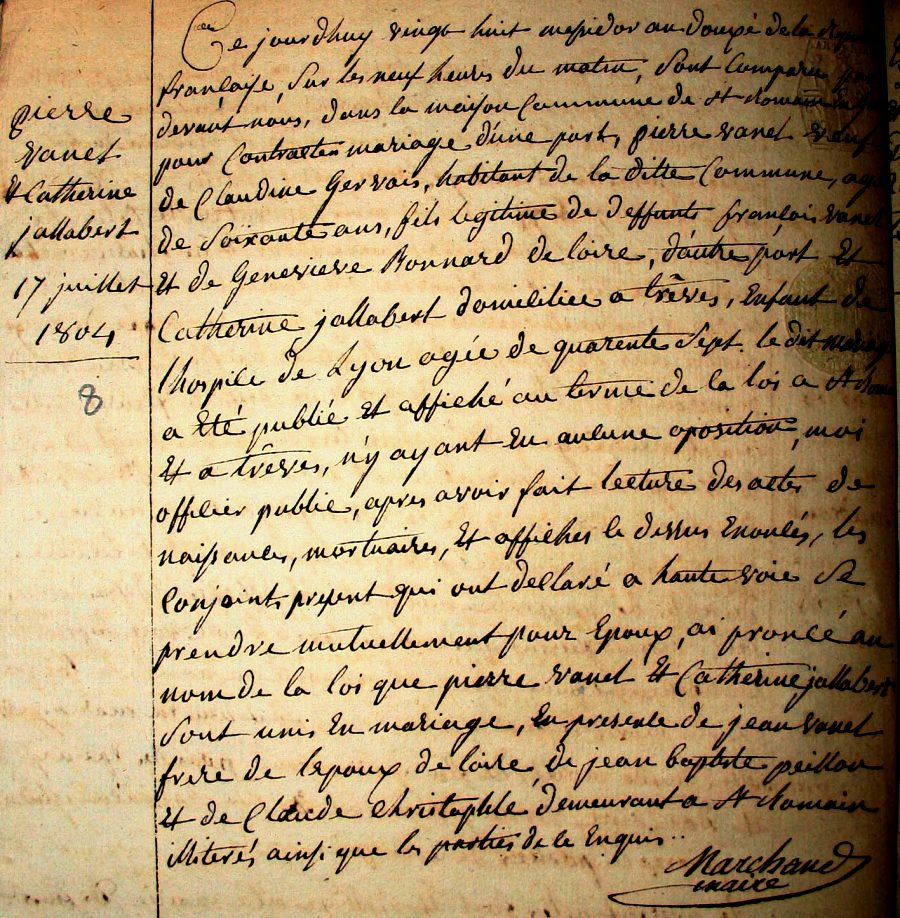 pierre
vanet
Et Catherine
jallabert
17 juillet
1804
8
Ce jourdhuy vingt huit mesidor an Douze de la
française, Sur les neuf heures du matin, Sont Comparu par
devant nous, dans la maison Commune de St Romain
pour Contracter mariage d'une part, pierre vanet veuf
de Claudine Gervais, habitant de la ditte Commune, agé
de soixante ans, fils legitime de deffunts françois vanet
Et de Genevieve Bonnard de loire, dautre part Et
Catherine jallabert domiciliée a trêves, Enfant de
lhospice de Lyon agée de quarente Sept. le dit mariage
a Eté publié Et affiché au terme de la loi a St Romain
Et a trêves, n'y ayant Eu aucune oposition, moi
officier public, apres avoir fait lecture des actes de
naissances, mortuaires, Et affiches le dessus Enoncés, les
Conjoints present qui ont declaré a haute voie se
prendre mutuellement pour Epoux, ai proncé au
nom de la loi que pierre vanet Et Catherine jallabert
Sont unis En mariage, En presence de jean vanet
frere de lepoux de loire, de jean baptiste peillon
Et de Claude Christophle demeurant a St Romain
illiterés ainsi que les parties de ce Enquis..
Marchand
maire